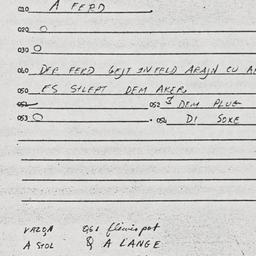 010 A FERD
020 O
030 O
040 DER FERD GEJT INFELD ARAJN CU A
050 ES SILEPT DEM AKER
052 052 J DEM PLUG
053 O . 054 DI SOXE
VAZOA 061 flewispot
A STOL & A LANGE